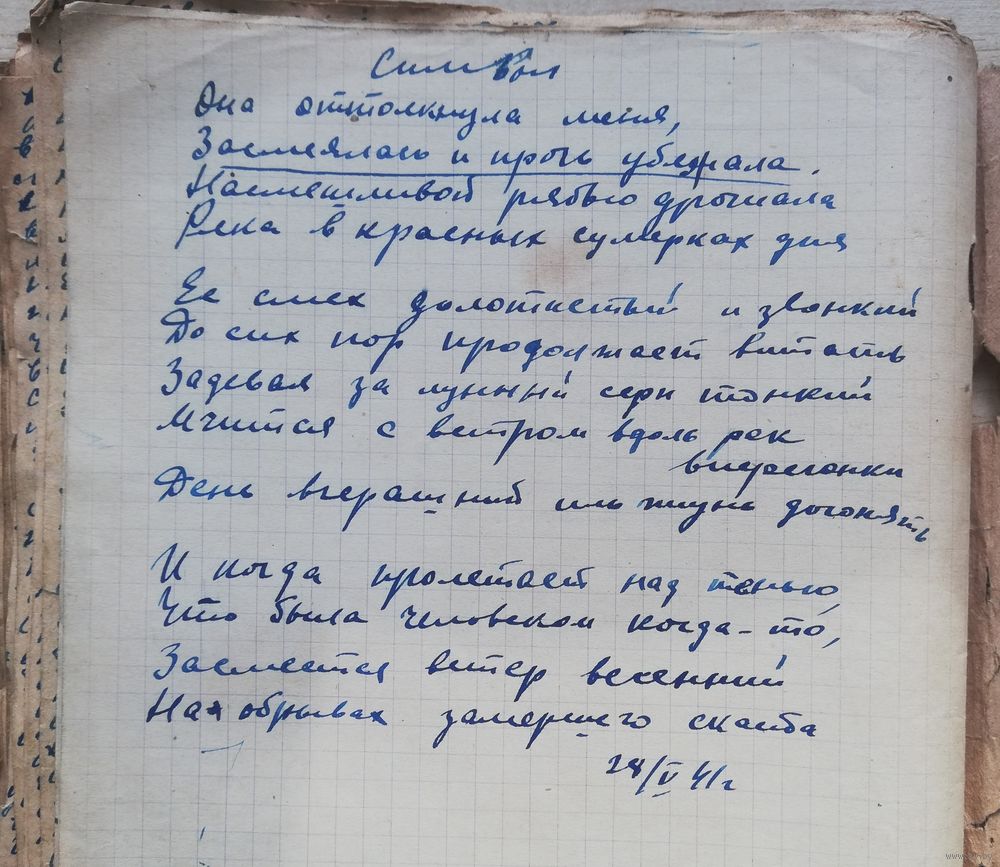 Символ
Она оттолкнула меня,
Засмеялась и прочь убежала.
Насмешливой рябью дрожала
Река в красных сумерках дня
Ее смех золотистый и звонкий
До сих пор продолжает витать
Задевая за лунный серп тонкий
Мчится с ветром вдоль рек
вперегонки
День вчерашний иль жизнь догонять
И когда пролетает над тенью,
Что была человеком когда-то,
Засмеется ветер весенний
На обрывах замершего
28/V 41 г